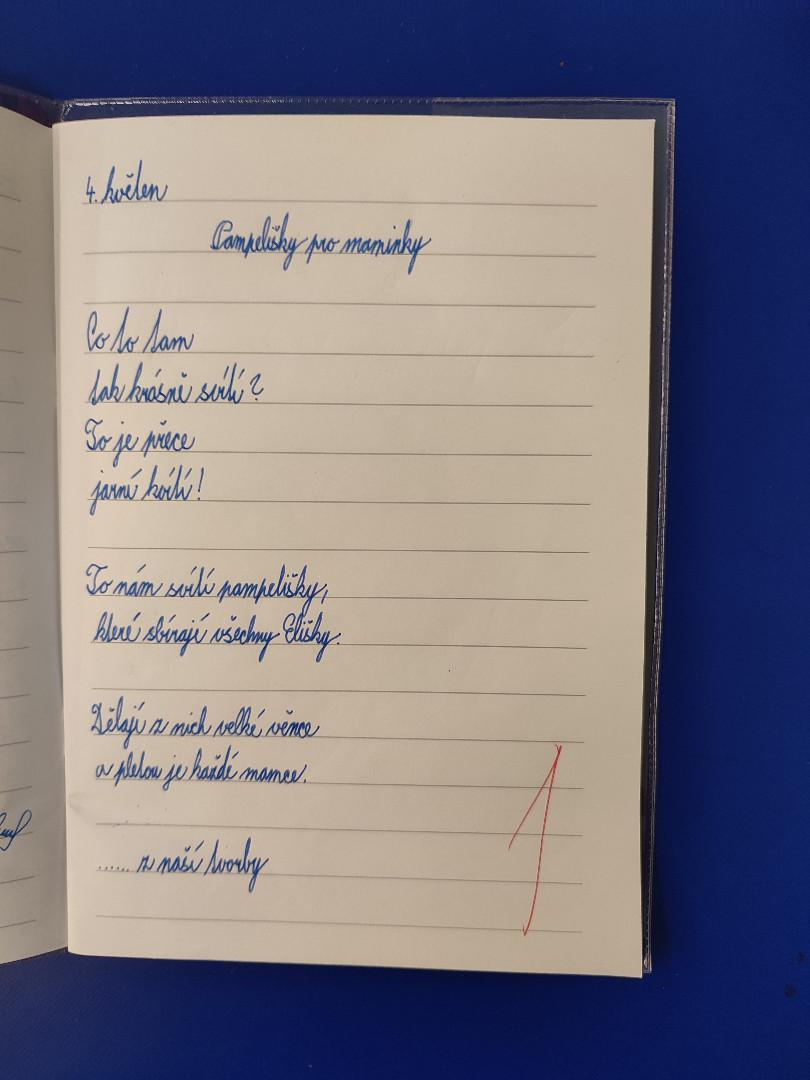 4. květen
Pampelišky pro maminky
Co to tam
tak krásně svítí?
To je přece
jarní kvítí!
To nám svítí pampelišky,
které sbírají všechny Elišky.
Dělají z nich velké věnce
a pletou je každé mamce.
...... z naší tvorby
1